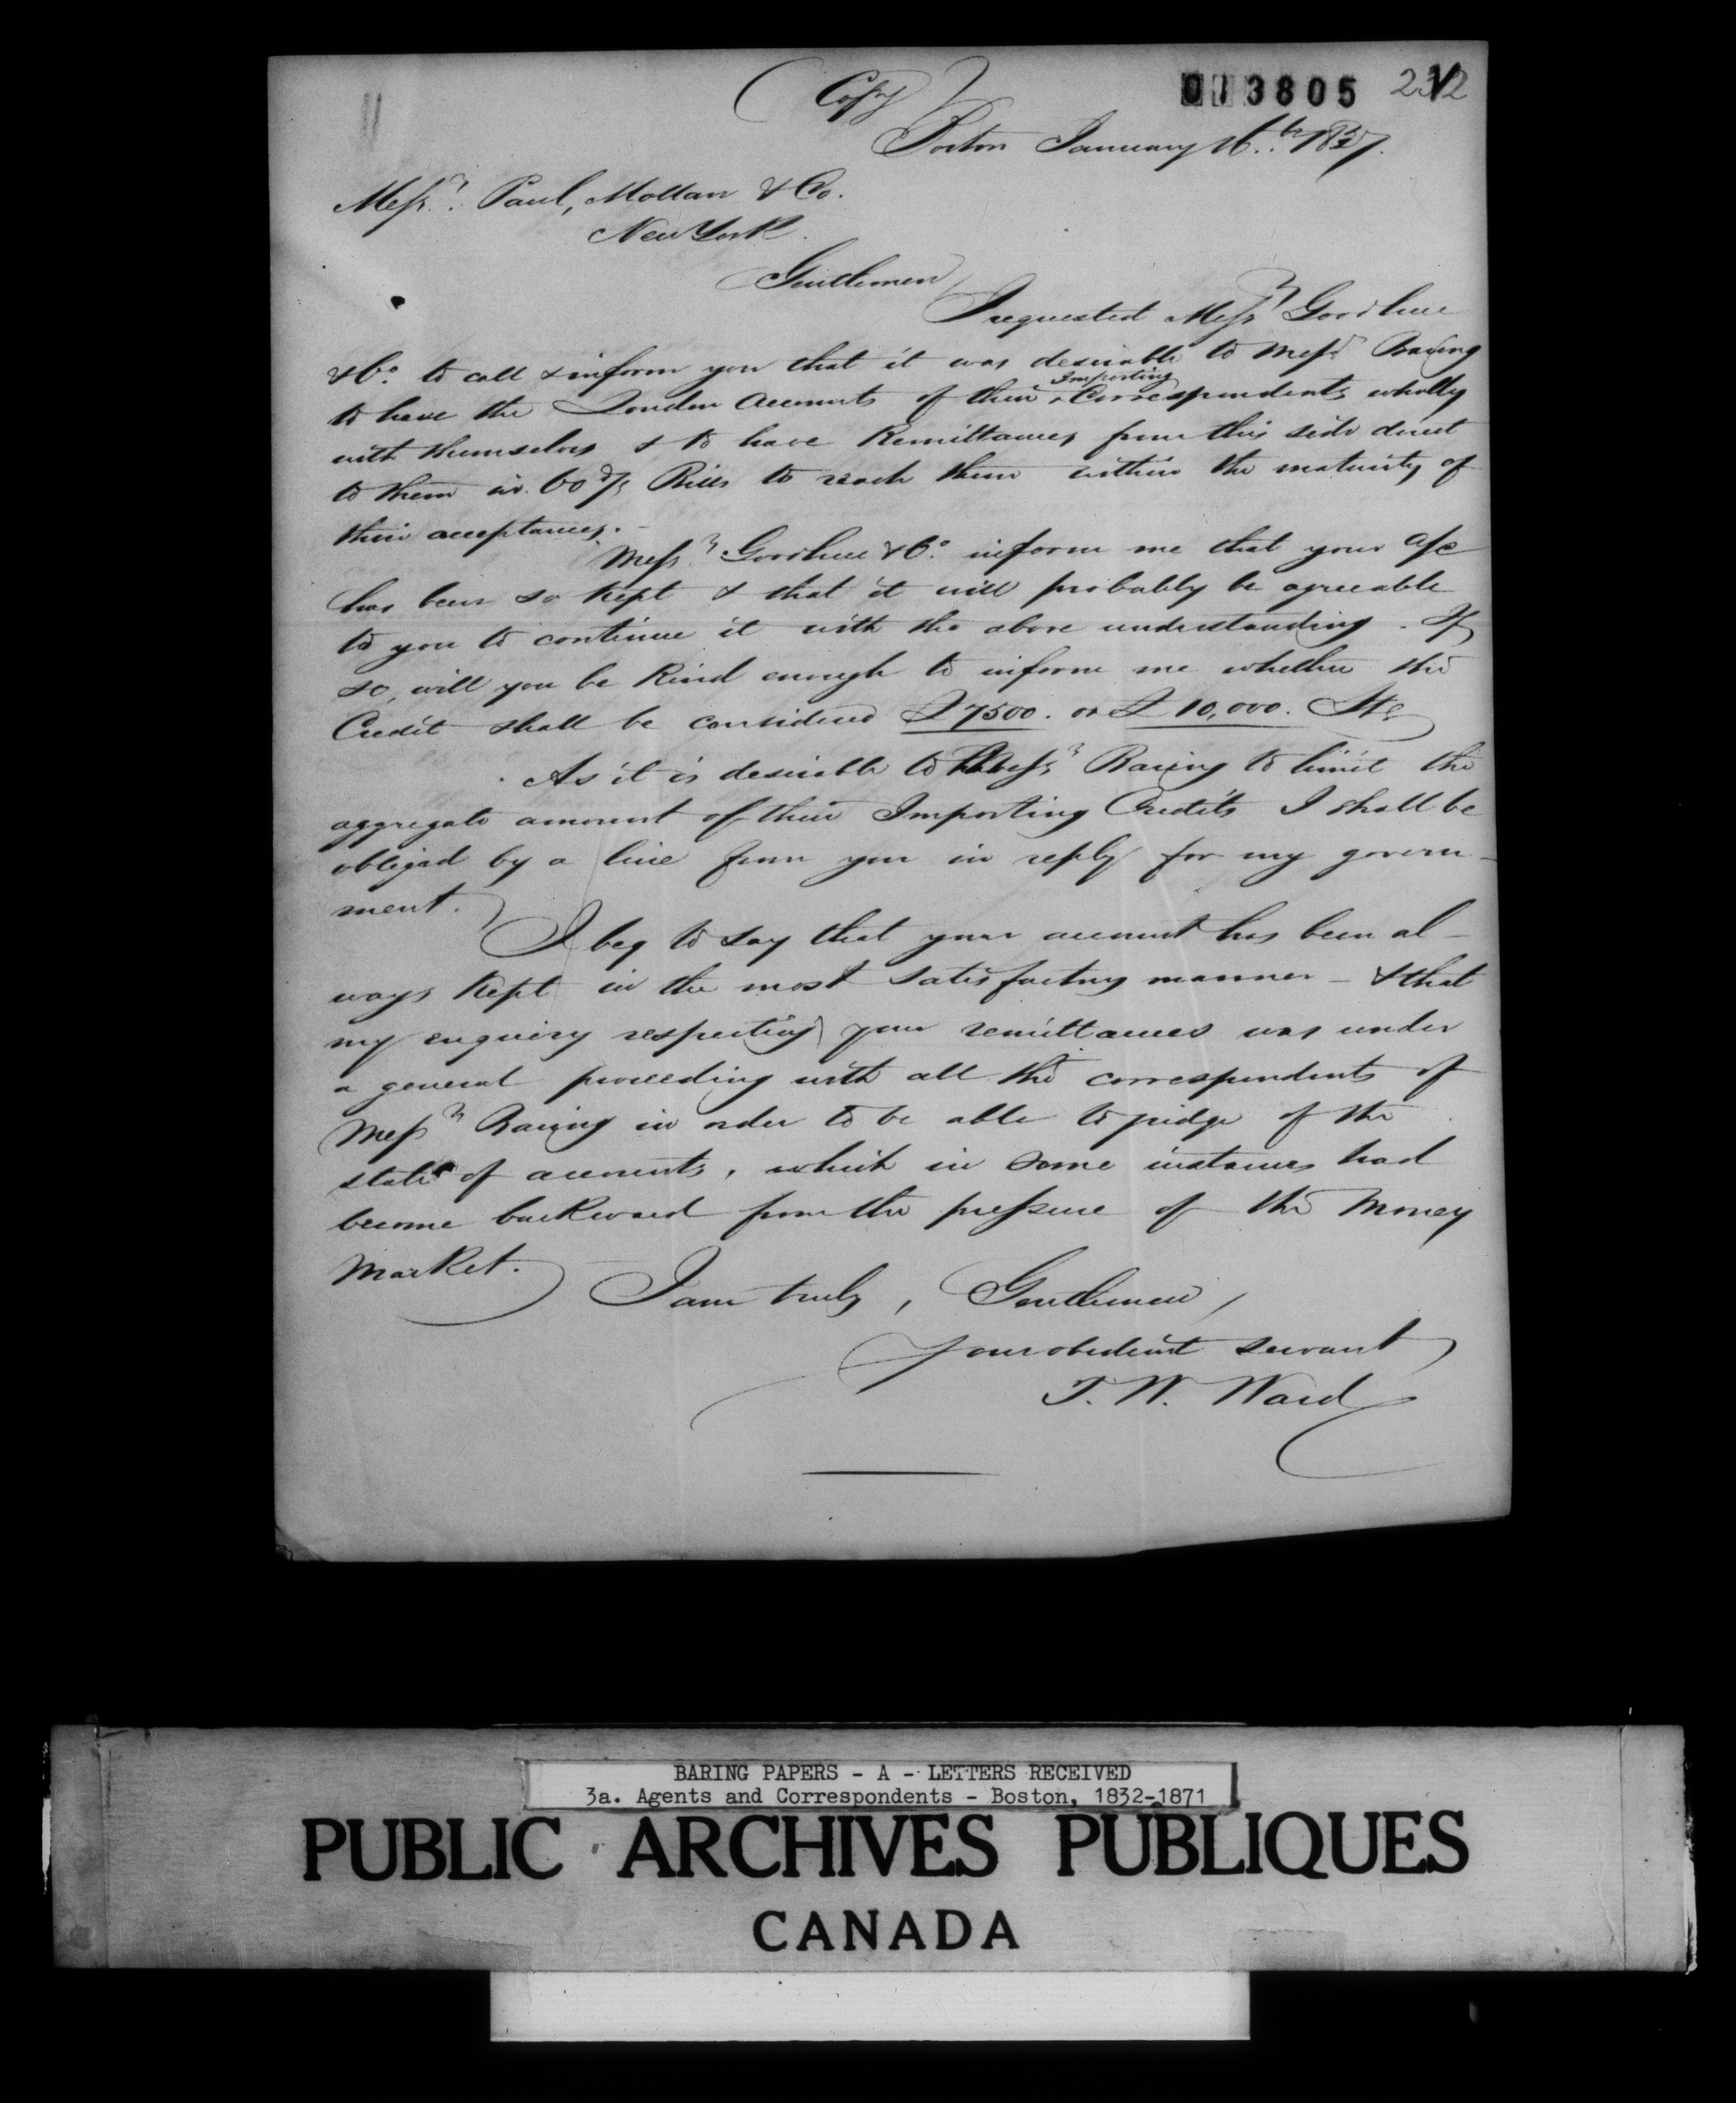 (Copy)
013805 232
Boston January 16.th 1837.
Messrs. Paul, Mollan & Co.
New York.
Gentlemen,
I requested Messrs Goodhue
& Co. to call & inform you that it was desirable to Messrs Baring
to have the London Accounts of their Importing Correspondents wholly
with themselves & to have Remittances from this side direct
to them in 60 d/s Bills to reach them within the maturity of
their acceptances. -
Messrs Goodhue & Co. inform me that your a/c
has been so kept & that it will probably be agreeable
to you to continue it with the above understanding - If
so, will you be kind enough to inform me whether the
Credit shall be considered £7500. or £10,000. Stg
As it is desirable to Messrs Baring to limit the
aggregate amount of their Importing Credits I shall be
obliged by a line from you in reply for my govern-
ment.
I beg to say that your account has been al-
ways kept in the most satisfactory manner - & that
my enquiry respecting your remittances was under
a general proceeding with all the correspondents of
Messrs Baring in order to be able to judge of the
state of accounts, which in some instances had
become backward from the pressure of the Money
Market.
I am truly, Gentlemen,
Your obedient servant
T. W. Ward
BARING PAPERS - A - LETTERS RECEIVED
3a. Agents and Correspondents - Boston, 1832-1871
PUBLIC ARCHIVES PUBLIQUES
CANADA